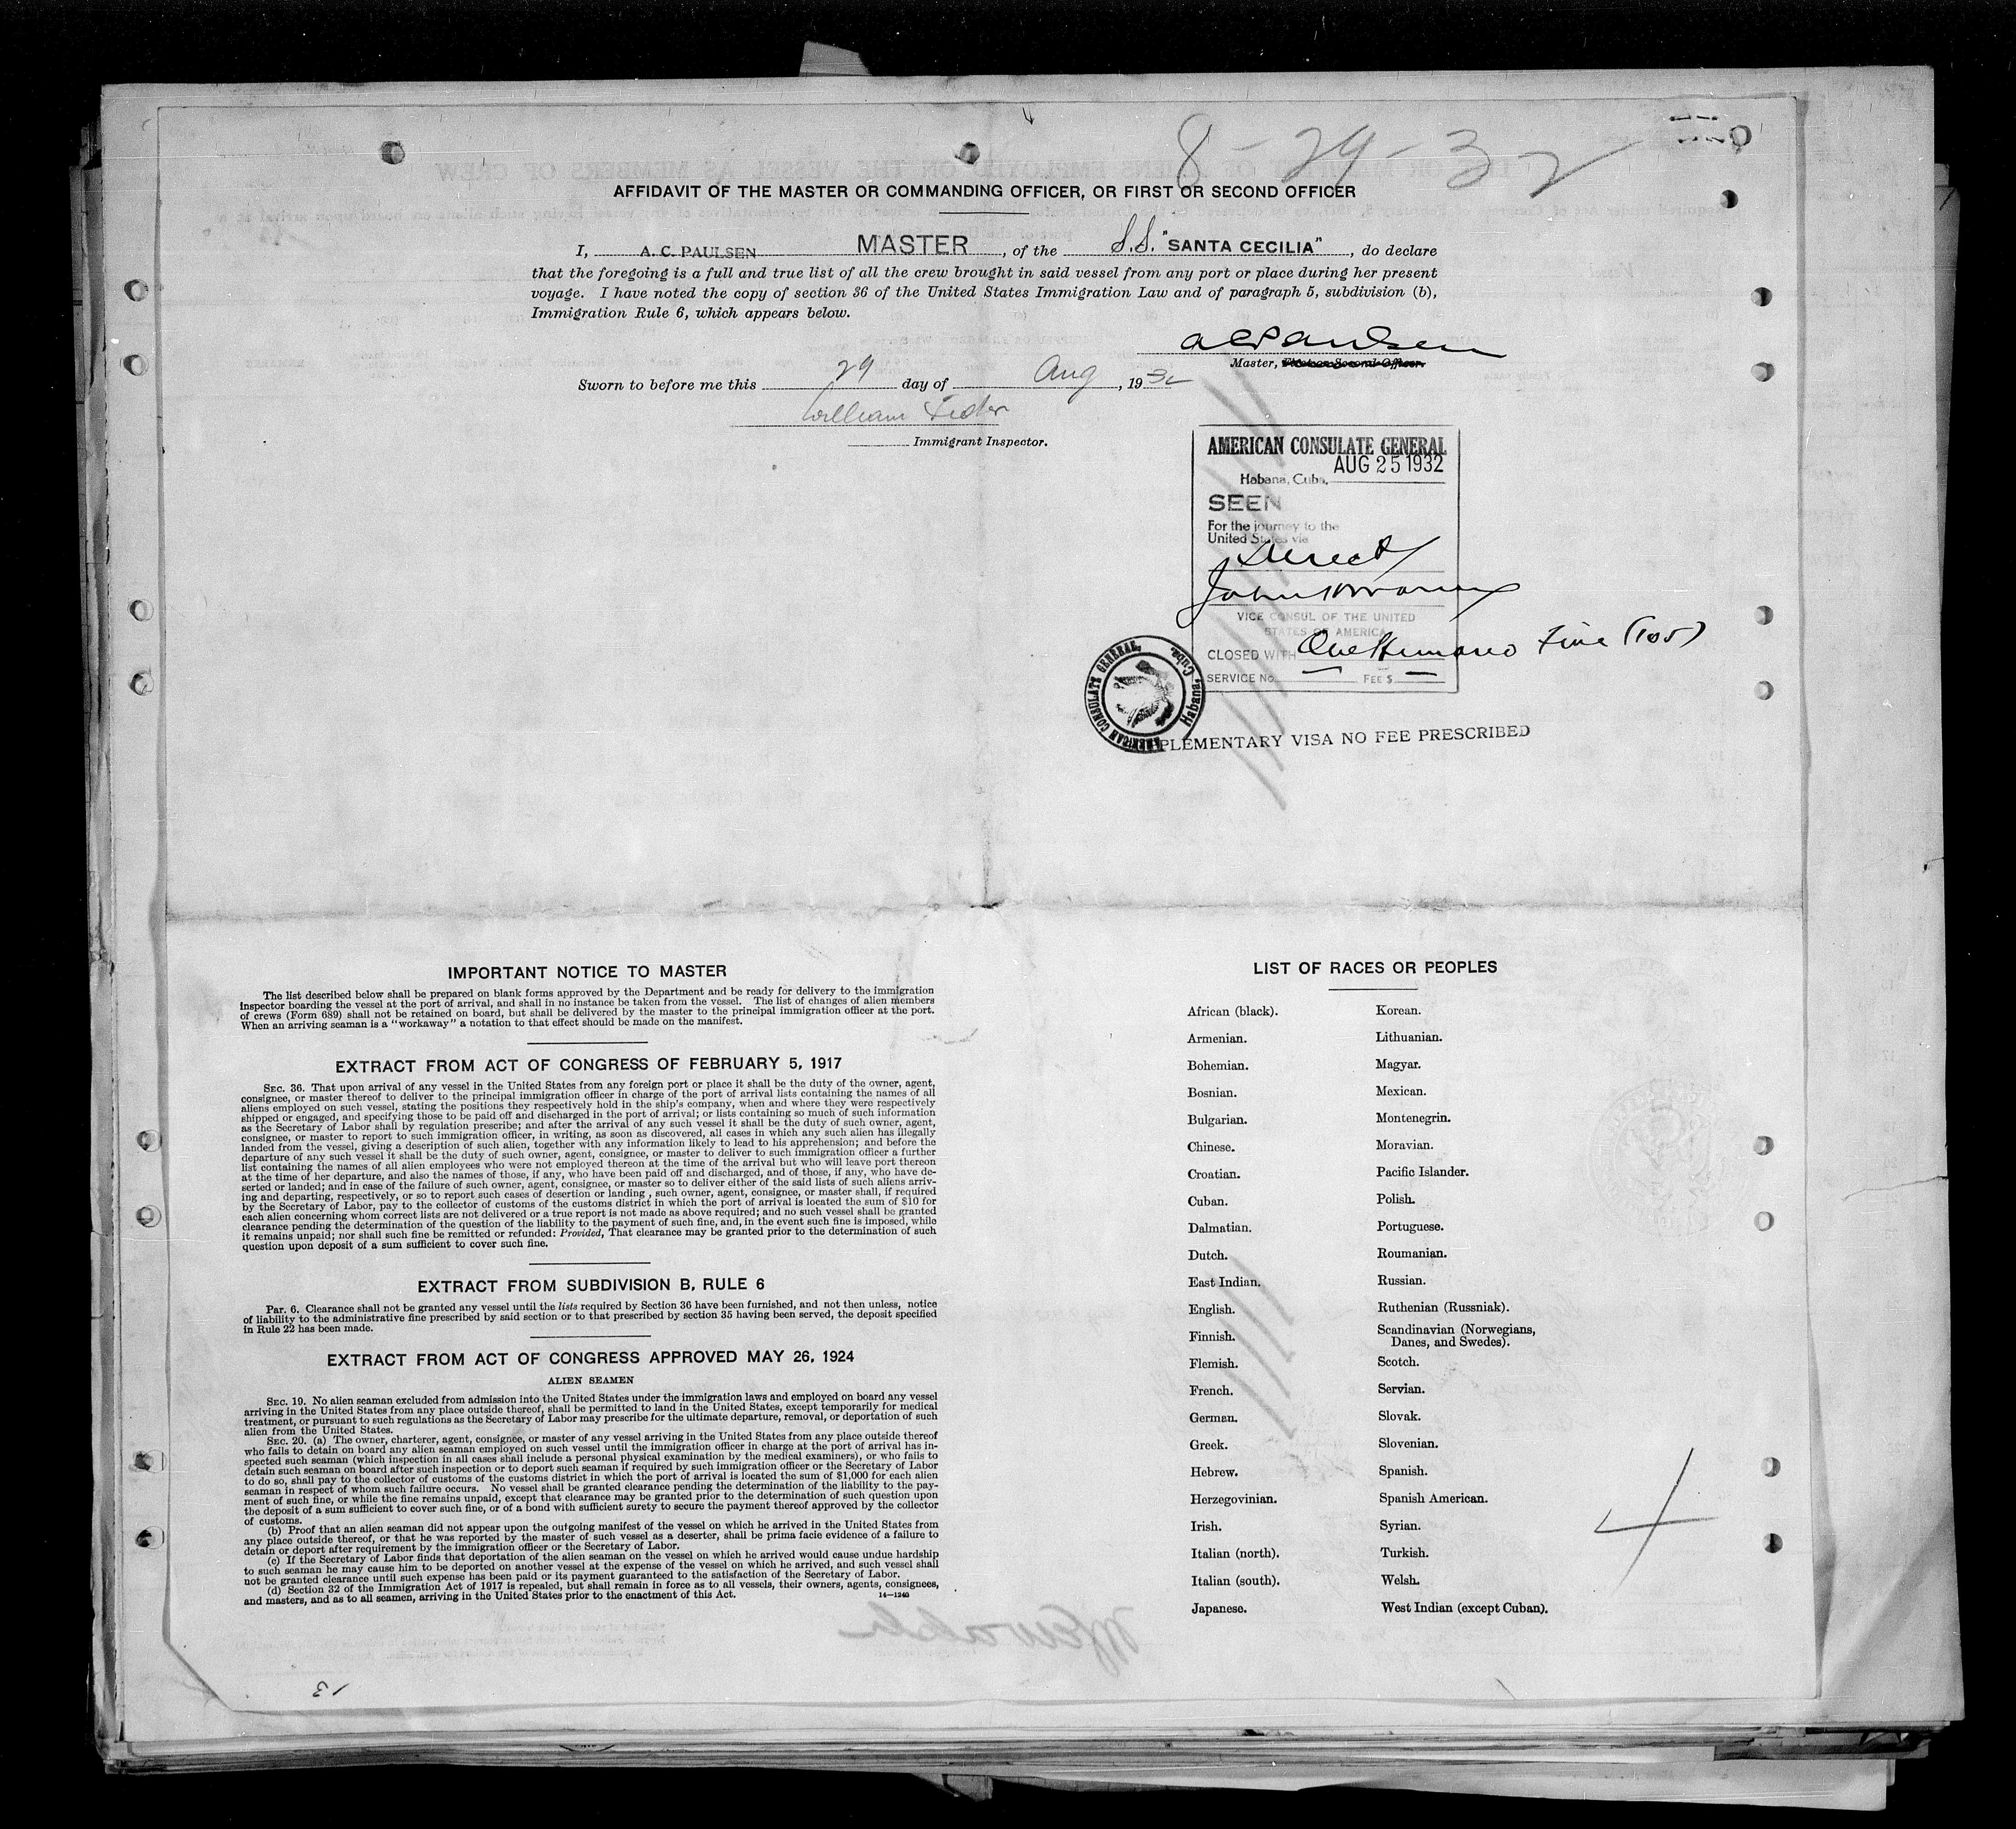 8-29-32
AFFIDAVIT OF THE MASTER OR COMMANDING OFFICER, OR FIRST OR SECOND OFFICER
I, A. C. PAULSEN MASTER, of the S.S. "SANTA CECILIA", do declare
that the foregoing is a full and true list of all the crew brought in said vessel from any port or place during her present
voyage. I have noted the copy of section 36 of the United States Immigration Law and of paragraph 5, subdivision (b),
Immigration Rule 6, which appears below.
ACPaulsen
Master, First or Second Officer.
Sworn to before me this 29 day of Aug, 1932
William
Immigrant Inspector.
AMERICAN CONSULATE GENERAL
AUG 25 1932
Habana, Cuba,
SEEN
For the journey to the
United States via
Direct
John
VICE CONSUL OF THE UNITED
STATES OF AMERICA
CLOSED WITH One Hundred Five (105)
SERVICE No. — FEE $ —
AMERICAN CONSULATE GENERAL, Habana, Cuba.
PLEMENTARY VISA NO FEE PRESCRIBED
IMPORTANT NOTICE TO MASTER
The list described below shall be prepared on blank forms approved by the Department and be ready for delivery to the immigration
inspector boarding the vessel at the port of arrival, and shall in no instance be taken from the vessel. The list of changes of alien members
of crews (Form 689) shall not be retained on board, but shall be delivered by the master to the principal immigration officer at the port.
When an arriving seaman is a "workaway" a notation to that effect should be made on the manifest.
EXTRACT FROM ACT OF CONGRESS OF FEBRUARY 5, 1917
SEC. 36. That upon arrival of any vessel in the United States from any foreign port or place it shall be the duty of the owner, agent,
consignee, or master thereof to deliver to the principal immigration officer in charge of the port of arrival lists containing the names of all
aliens employed on such vessel, stating the positions they respectively hold in the ship's company, when and where they were respectively
shipped or engaged, and specifying those to be paid off and discharged in the port of arrival; or lists containing so much of such information
as the Secretary of Labor shall by regulation prescribe; and after the arrival of any such vessel it shall be the duty of such owner, agent,
consignee, or master to report to such immigration officer, in writing, as soon as discovered, all cases in which any such alien has illegally
landed from the vessel, giving a description of such alien, together with any information likely to lead to his apprehension; and before the
departure of any such vessel it shall be the duty of such owner, agent, consignee, or master to deliver to such immigration officer a further
list containing the names of all alien employees who were not employed thereon at the time of the arrival but who will leave port thereon
at the time of her departure, and also the names of those, if any, who have been paid off and discharged, and of those, if any, who have de-
serted or landed; and in case of the failure of such owner, agent, consignee, or master so to deliver either of the said lists of such aliens arriv-
ing and departing, respectively, or so to report such cases of desertion or landing, such owner, agent, consignee, or master shall, if required
by the Secretary of Labor, pay to the collector of customs of the customs district in which the port of arrival is located the sum of $10 for
each alien concerning whom correct lists are not delivered or a true report is not made as above required; and no such vessel shall be granted
clearance pending the determination of the question of the liability to the payment of such fine, and, in the event such fine is imposed, while
it remains unpaid; nor shall such fine be remitted or refunded: Provided, That clearance may be granted prior to the determination of such
question upon deposit of a sum sufficient to cover such fine.
EXTRACT FROM SUBDIVISION B, RULE 6
Par. 6. Clearance shall not be granted any vessel until the lists required by Section 36 have been furnished, and not then unless, notice
of liability to the administrative fine prescribed by said section or to that prescribed by section 35 having been served, the deposit specified
in Rule 22 has been made.
EXTRACT FROM ACT OF CONGRESS APPROVED MAY 26, 1924
ALIEN SEAMEN
SEC. 19. No alien seaman excluded from admission into the United States under the immigration laws and employed on board any vessel
arriving in the United States from any place outside thereof, shall be permitted to land in the United States, except temporarily for medical
treatment, or pursuant to such regulations as the Secretary of Labor may prescribe for the ultimate departure, removal, or deportation of such
alien from the United States.
SEC. 20. (a) The owner, charterer, agent, consignee, or master of any vessel arriving in the United States from any place outside thereof
who fails to detain on board any alien seaman employed on such vessel until the immigration officer in charge at the port of arrival has in-
spected such seaman (which inspection in all cases shall include a personal physical examination by the medical examiners), or who fails to
detain such seaman on board after such inspection or to deport such seaman if required by such immigration officer or the Secretary of Labor
to do so, shall pay to the collector of customs of the customs district in which the port of arrival is located the sum of $1,000 for each alien
seaman in respect of whom such failure occurs. No vessel shall be granted clearance pending the determination of the liability to the pay-
ment of such fine, or while the fine remains unpaid, except that clearance may be granted prior to the determination of such question upon
the deposit of a sum sufficient to cover such fine, or of a bond with sufficient surety to secure the payment thereof approved by the collector
of customs.
(b) Proof that an alien seaman did not appear upon the outgoing manifest of the vessel on which he arrived in the United States from
any place outside thereof, or that he was reported by the master of such vessel as a deserter, shall be prima facie evidence of a failure to
detain or deport after requirement by the immigration officer or the Secretary of Labor.
(c) If the Secretary of Labor finds that deportation of the alien seaman on the vessel on which he arrived would cause undue hardship
to such seaman he may cause him to be deported on another vessel at the expense of the vessel on which he arrived, and such vessel shall
not be granted clearance until such expense has been paid or its payment guaranteed to the satisfaction of the Secretary of Labor.
(d) Section 32 of the Immigration Act of 1917 is repealed, but shall remain in force as to all vessels, their owners, agents, consignees,
and masters, and as to all seamen, arriving in the United States prior to the enactment of this Act.
14—1240
LIST OF RACES OR PEOPLES
African (black). Korean.
Armenian. Lithuanian.
Bohemian. Magyar.
Bosnian. Mexican.
Bulgarian. Montenegrin.
Chinese. Moravian.
Croatian. Pacific Islander.
Cuban. Polish.
Dalmatian. Portuguese.
Dutch. Roumanian.
East Indian. Russian.
English. Ruthenian (Russniak).
Finnish. Scandinavian (Norwegians,
Danes, and Swedes).
Flemish. Scotch.
French. Servian.
German. Slovak.
Greek. Slovenian.
Hebrew. Spanish.
Herzegovinian. Spanish American.
Irish. Syrian.
Italian (north). Turkish.
Italian (south). Welsh.
Japanese. West Indian (except Cuban).
13